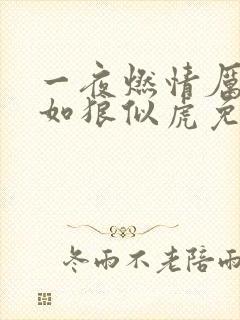 一夜燃情厉
如狼似虎免
冬雨不老陪雨